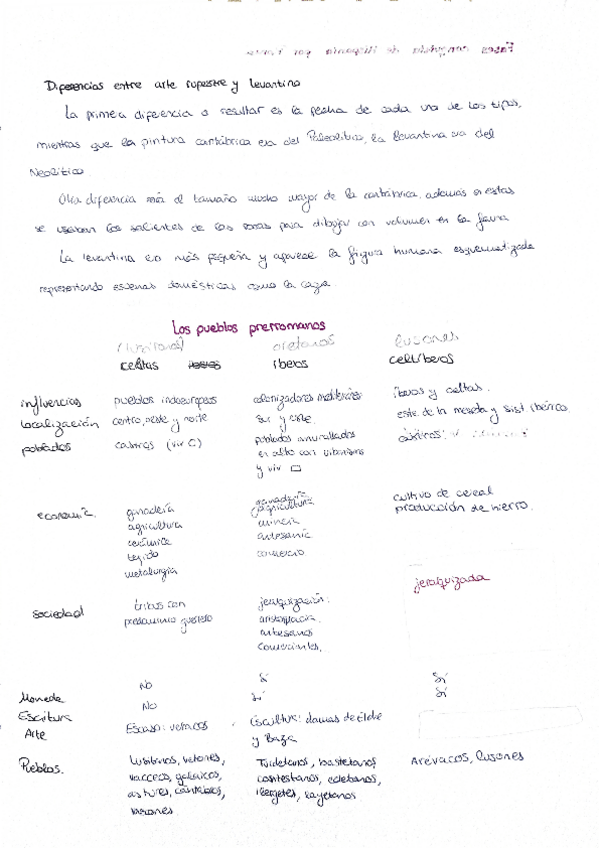 Diferencias entre arte rupestre y levantino
La primera diferencia a resultar es la fecha de cada uno de los tipos,
mientras que la pintura cantábrica era del Paleolítico, la levantina va del
Neolítico.
Otra diferencia más el tamaño mucho mayor de la cantábrica, además en estas
se usaban los salientes de las rocas para dibujar con volumen en la
La levantina era más pequeña y aparece la figura humana esquematizada
representando escenas domésticas como la caza.
Los pueblos prerromanos
oretanos lusones
celtas iberos celtíberos
influencias pueblos indoeuropeos colonizadores mediterráneos iberos y celtas.
localización centro, oeste y norte sur y este. este de la meseta y sist. ibérico
poblados castros (viv C) poblados amurallados
en alto con urbanismo
y viv
economía. ganadería ganadería cultivo de cereal
agricultura agricultura producción de hierro.
cerámica minería
tejido artesanía
metalurgia comercio
jerarquizada
sociedad tribus con jerarquización:
predominio guerrero aristocracia
artesanos
comerciantes.
Moneda No Sí Sí
Escritura No Sí Sí
Arte Escaso: verracos Escultura: damas de Elche
y Baza
Pueblos. lusitanos, vetones, Turdetanos, bastetanos Arévacos, lusones
vacceos, galaicos, contestanos, edetanos,
astures, cántabros, ilergetes, layetanos